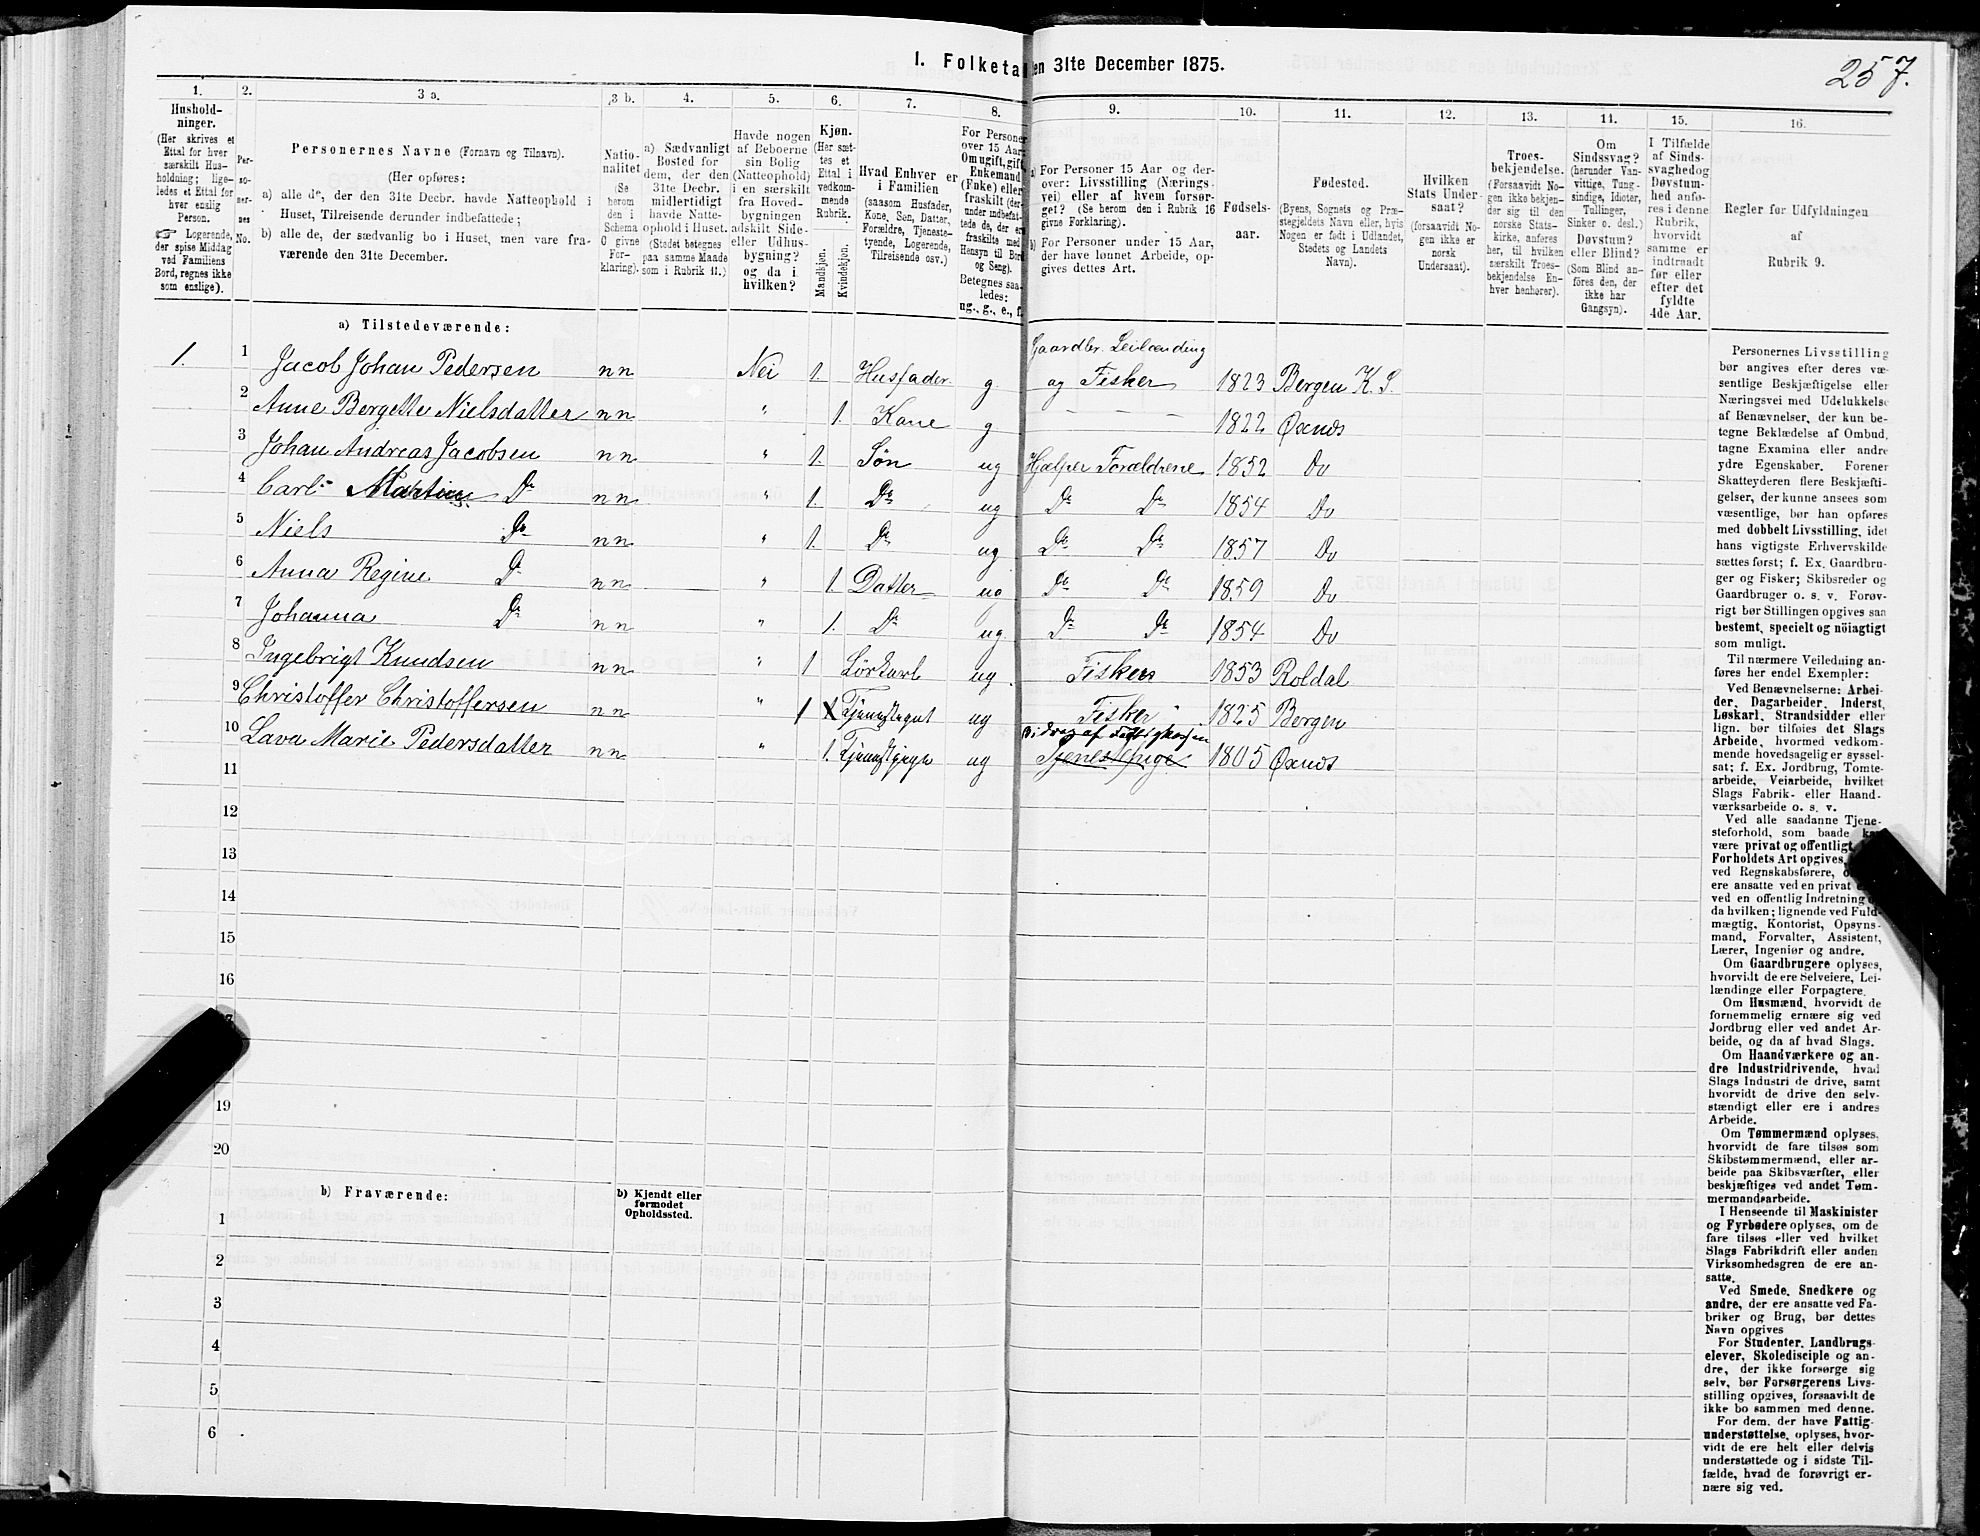 257.
I. Folketa en 31te December 1875.
1. 2. 3 a. 3 b. 4. 5. 6. 7. 8. 9. 10. 11. 12. 13. 11. 15. 16.
Hushold-
ninger.
(Her skrives et
Ettal for hver
særskilt Hus-
holdning; lige-
ledes et Ettal for
hver enslig
Person.
☞ Logerende,
der spise Middag
ved Familiens
Bord, regnes ikke
som enslige).
Per-
so-
ner-
nes
No.
Personernes Navne (Fornavn og Tilnavn).
(Her opføres:
a) alle de, der den 31te Decbr. havde Natteophold i
Huset, Tilreisende derunder indbefattede;
b) alle de, der sædvanlig bo i Huset, men vare fra-
værende den 31te December.
Natio-
nalitet
(Se
herom
den i
Schema
O givne
For-
klaring).
a) Sædvanligt
Bosted for
dem, der den
31te Decbr.
midlertidigt
havde Natte-
ophold i Huset.
(Stedet betegnes
paa samme Maade
som i Rubrik 11.)
Havde nogen
af Beboerne
sin Bolig
(Natteophold)
i en særskilt
fra Hoved-
bygningen
adskilt Side-
eller Udhus-
bygning?
og da i
hvilken?
Kjøn.
(Her sæt-
tes et
Ettal i
vedkom-
mende
Rubrik.
Mandskjøn.
Kvindekjøn.
Hvad Enhver er
i Familien
(saasom Husfader,
Kone, Søn, Datter,
Forældre, Tjeneste-
tyende, Logerende,
Tilreisende osv.)
For Personer
over 15 Aar:
Om ugift, gift,
Enkemand
(Enke) eller
fraskilt (der-
under indbefat-
tede de, der ere
fraskilte med
Hensyn til Bord
og Seng).
Betegnes saa-
ledes:
ug., g., e., f.
a) For Personer 15 Aar og der-
over: Livsstilling (Nærings-
vei) eller af hvem forsør-
get? (Se herom den i Rubrik 16
givne Forklaring).
b) For Personer under 15 Aar,
der have lønnet Arbeide, op-
gives dettes Art.
Fødsels-
aar.
Fødested.
(Byens, Sognets og Præ-
stegjeldets Navn eller, hvis
Nogen er født i Udlandet,
Stedets og Landets
Navn).
Hvilken
Stats Under-
saat?
(forsaavidt No-
gen ikke er
norsk
Undersaat).
Troes-
bekjendelse.
(Forsaavidt No-
gen ikke bekjen-
der sig til den
norske Stats-
kirke, anføres
her, til hvilken
særskilt Troes-
bekjendelse En-
hver henhører).
Om
Sindssvag?
(herunder Van-
vittige, Tung-
sindige, Idioter,
Tullinger,
Sinker o. desl.)
Døvstum?
eller Blind?
(Som Blind an-
føres den, der
ikke har
Gangsyn).
I Tilfælde
af Sinds-
svaghed og
Døvstum-
hed anfø-
res i denne
Rubrik,
hvorvidt
samme er
indtraadt
før eller
efter det
fyldte
4de Aar.
Regler for Udfyldningen
af
Rubrik 9.
a) Tilstedeværende:
1. 1 Jacob Johan Pedersen nn Nei 1. Husfader g Gaardbr. Leilænding og Fisker 1823 Bergen K. S.
2 Anne Bergette Nielsdatter nn " 1. Kone g — — — 1822 Øxnæs
3 Johan Andreas Jacobsen nn " 1. Søn ug Hjælper Forældrene 1852 Do
4 Carl Martin Do nn " 1. Do ug Do Do 1854 Do
5 Niels Do nn " 1. Do ug Do Do 1857 Do
6 Anna Regine Do nn " 1. Datter ug Do Do 1859 Do
7 Johanna Do nn " 1. Do ug Do Do 1854 Do
8 Ingebrigt Knudsen nn " 1 Løskarl ug Fisker 1853 Roldal
9 Christoffer Christoffersen nn " 1 ug Fisker 1825 Bergen
10 Lava Marie Pedersdatter nn " 1. ug Bidrag af Fattigkassen Tjenestepige 1805 Øxnæs
11
12
13
14
15
16
19
20
b) Fraværende:
b) Kjendt eller
formodet
Opholdssted.
1
2
3
4
5
6
Personernes Livsstilling
bør angives efter deres væ-
sentlige Beskjæftigelse eller
Næringsvei med Udelukkelse
af Benævnelser, der kun be-
tegne Beklædelse af Ombud,
tagne Examina eller andre
ydre Egenskaber. Forener
Skatteyderen flere Beskjæfti-
gelser, der kunne ansees som
væsentlige, bør han opføres
med dobbelt Livsstilling, idet
hans vigtigste Erhvervskilde
sættes først; f. Ex. Gaardbru-
ger og Fisker; Skibsreder og
Gaardbruger o. s. v. Forøv-
rigt bør Stillingen opgives saa
bestemt, specielt og nöiagtigt
som muligt.
Til nærmere Veiledning an-
føres her endel Exempler:
Ved Benævnelserne: Arbei-
der, Dagarbeider, Inderst,
Løskarl, Strandsidder eller
lign. bør tilføies det Slags
Arbeide, hvormed vedkom-
mende hovedsagelig er syssel-
sat; f. Ex. Jordbrug, Tomte-
arbeide, Veiarbeide, hvilket
Slags Fabrik- eller Haand-
værksarbeide o. s. v.
Ved alle saadanne Tjene-
steforhold, som baade
være privat og offentligt,
Forholdets Art opgives,
ved Regnskabsførere,
ere ansatte ved en privat
ved en offentlig Indretning
da hvilken; lignende ved Fuld-
mægtig, Kontorist, Opsyns-
mand, Forvalter, Assistent,
Lærer, Ingeniør og andre.
Om Gaardbrugere oplyses,
hvorvidt de ere Selveiere, Lei-
lændinge eller Forpagtere.
Om Husmænd, hvorvidt de
fornemmelig ernære sig ved
Jordbrug eller ved andet Ar-
beide, og da af hvad Slags.
Om Haandværkere og an-
dre Industridrivende, hvad
Slags Industri de drive, samt
hvorvidt de drive den selv-
stændigt eller ere i andres
Arbeide.
Om Tømmermænd oplyses,
hvorvidt de fare tilsøs som
Skibstømmermænd, eller ar-
beide paa Skibsværfter, eller
beskjæftiges ved andet Tøm-
mermandsarbeide.
I Henseende til Maskinister
og Fyrbødere oplyses, om de
fare tilsøs eller ved hvilket
Slags Fabrikdrift eller anden
Virksomhedsgren de ere an-
satte.
Ved Smede, Snedkere og
andre, der ere ansatte ved Fa-
briker og Brug, bør dettes
Navn opgives
For Studenter, Landbrugs-
elever, Skoledisciple og an-
dre, der ikke forsørge sig
selv, bør Forsørgerens Livs-
stilling opgives, forsaavidt de
ikke bo sammen med denne.
For dem, der have Fattig-
understøttelse, oplyses, hvor-
vidt de ere helt eller delvis
understøttede og i sidste Til-
fælde, hvad de forøvrigt er-
nære sig ved.